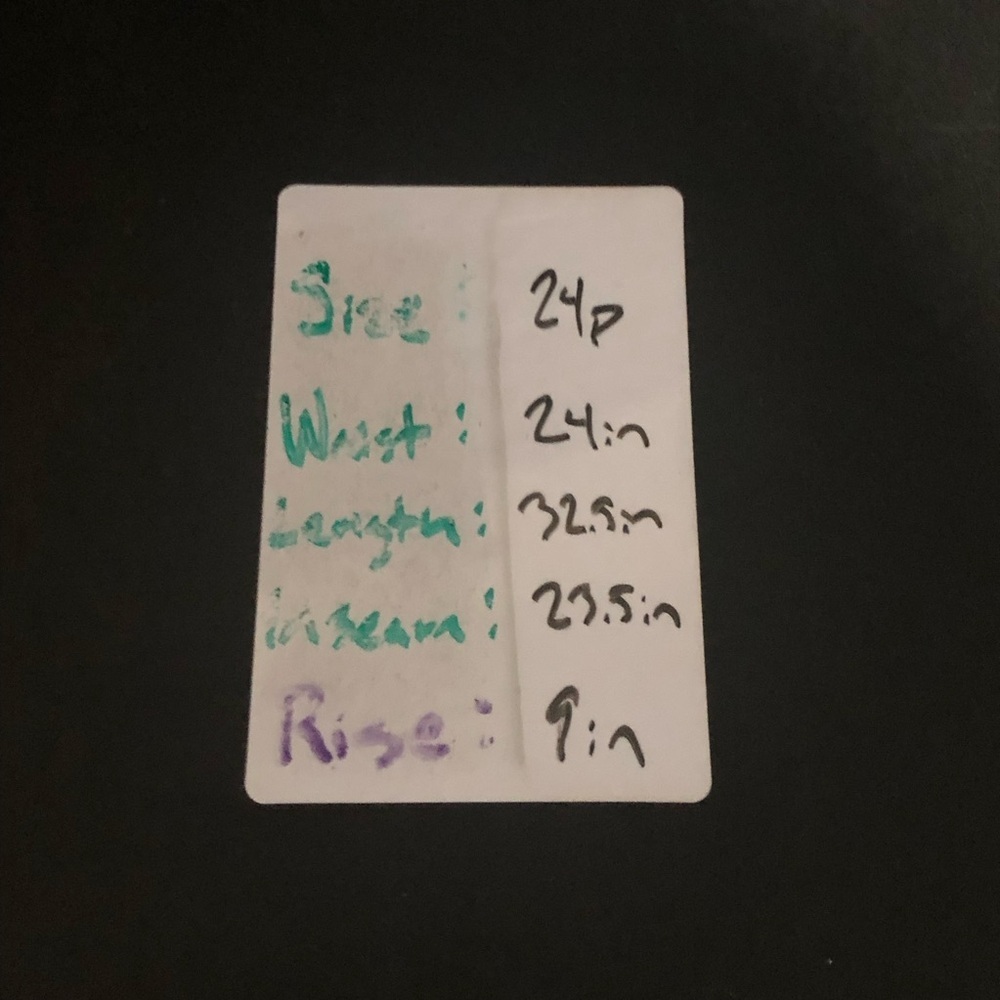 Size : 24p
Waist : 24in
Length : 32.5in
inseam : 23.5in
Rise : 9in